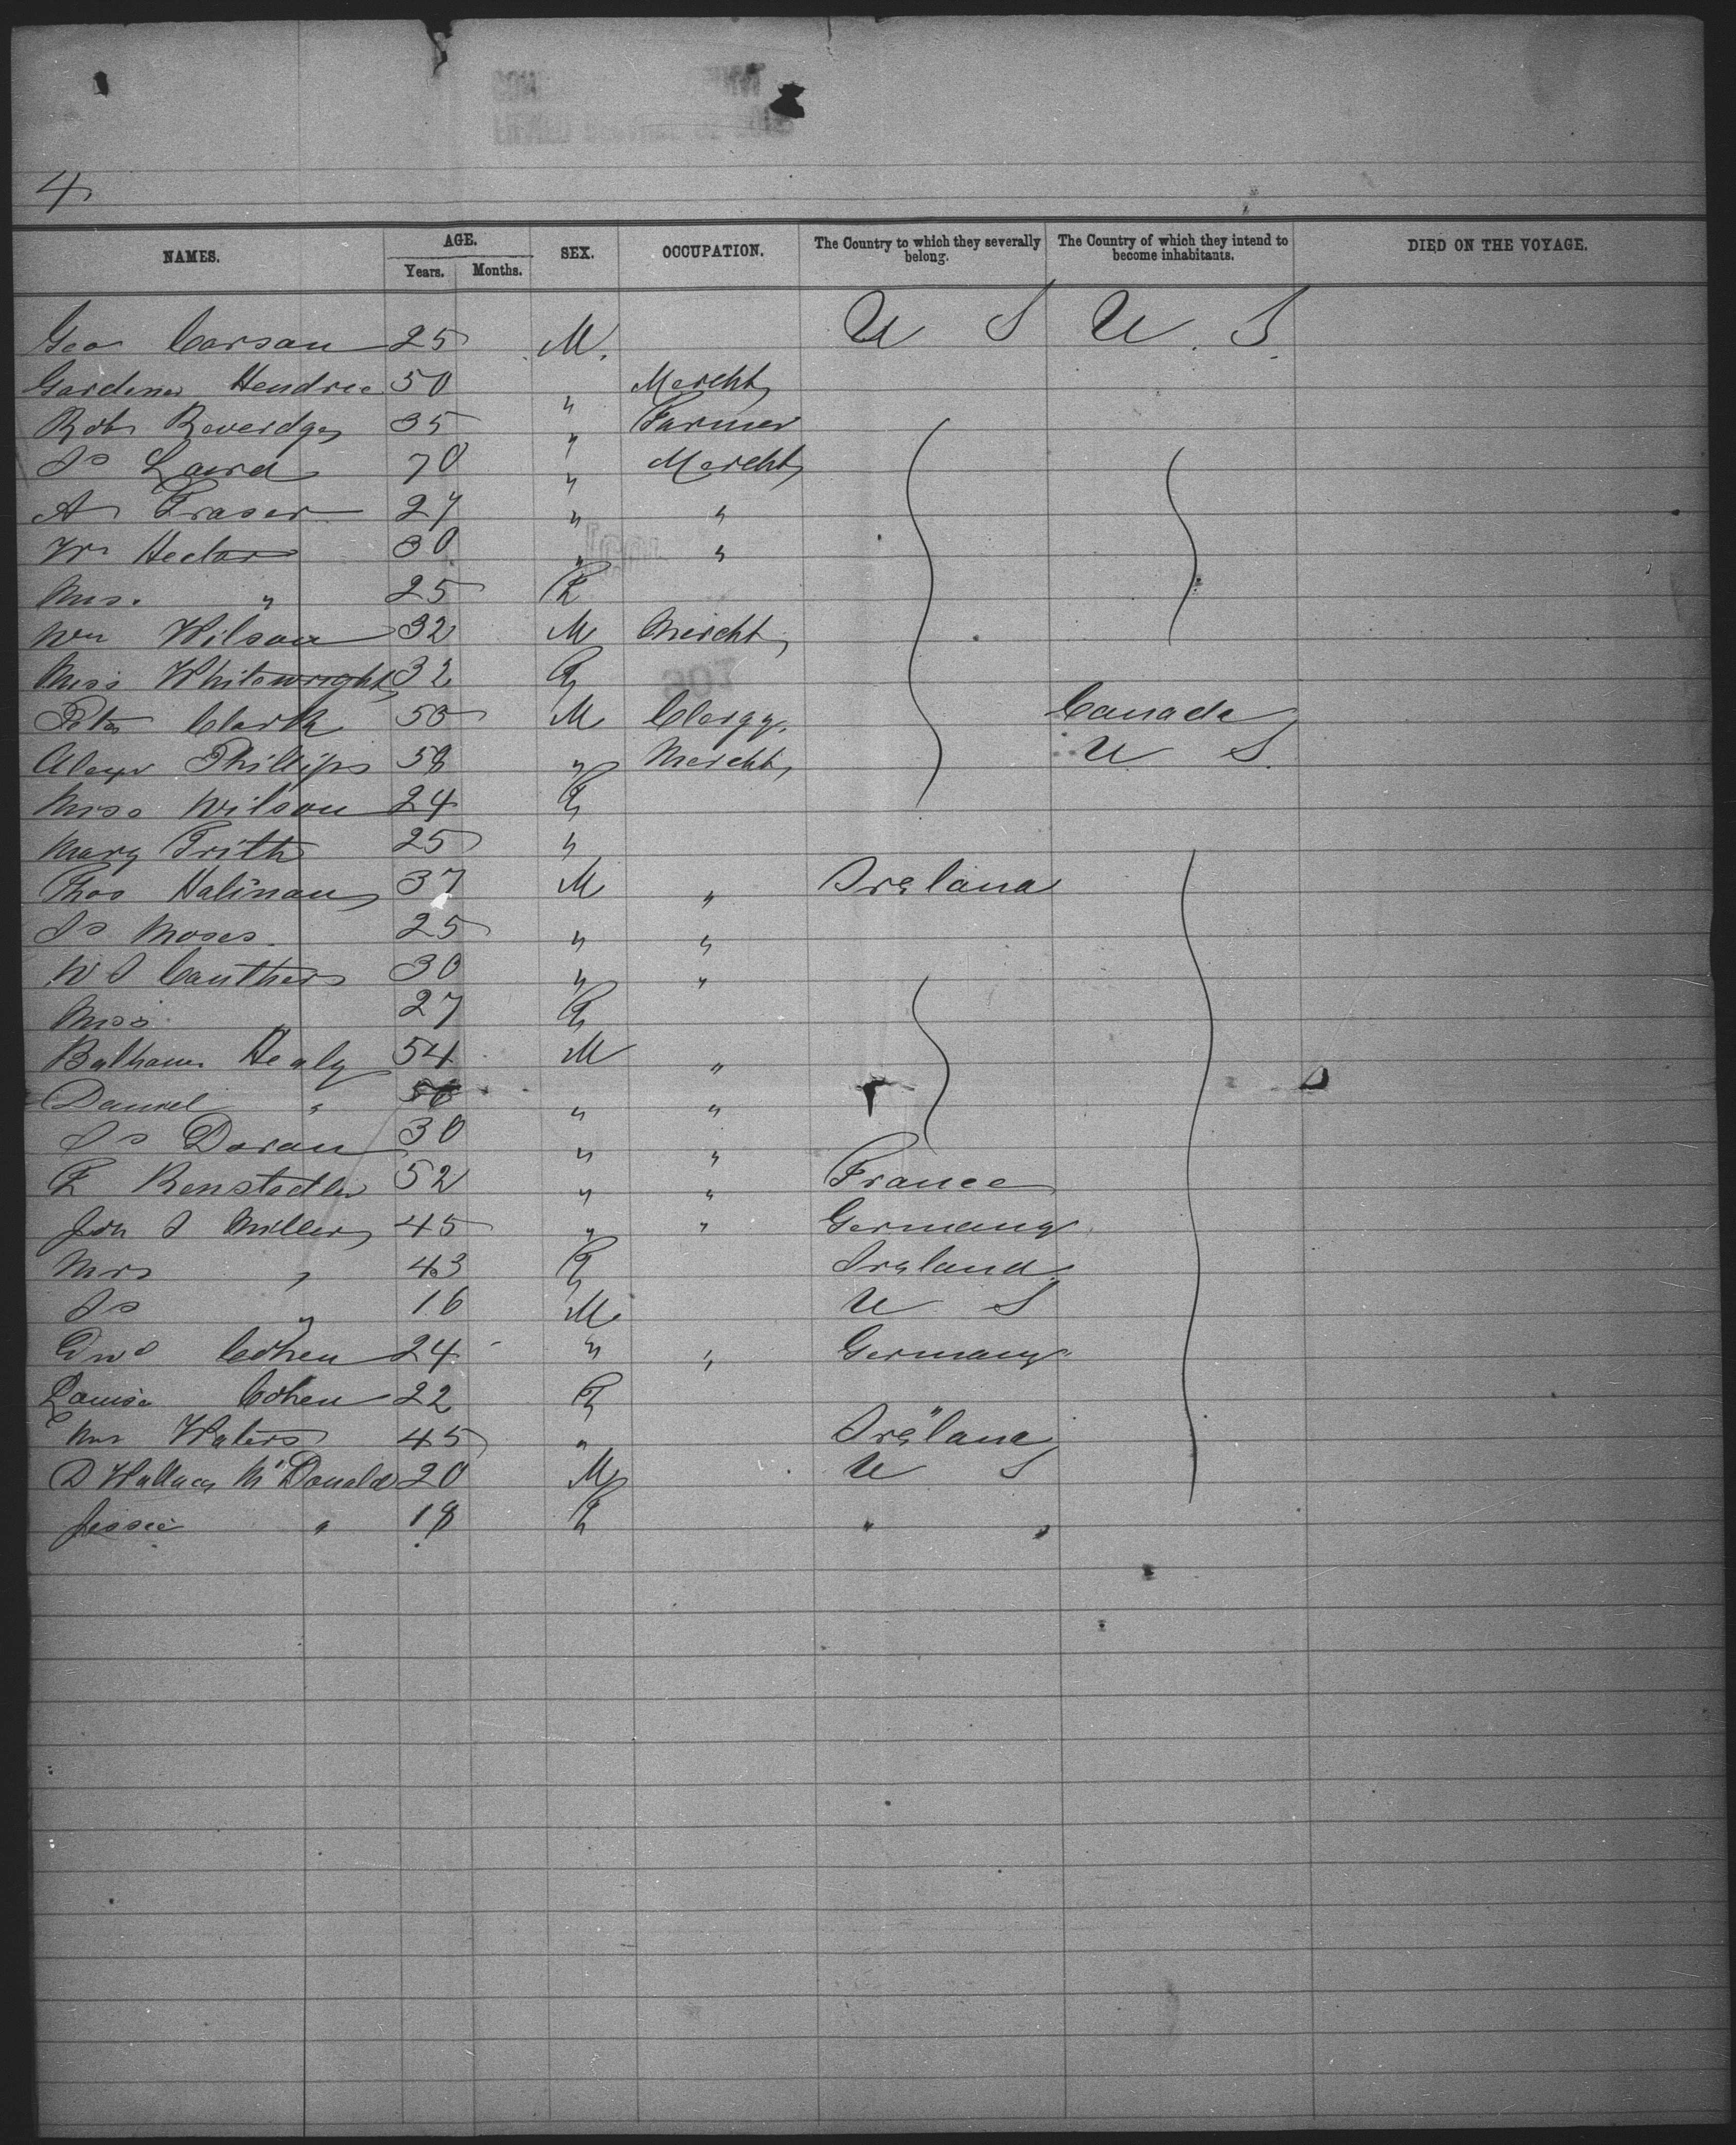 4
NAMES. AGE. Years. Months. SEX. OCCUPATION. The Country to which they severally belong. The Country of which they intend to become inhabitants. DIED ON THE VOYAGE.
Geo Carson 25 M. U S U. S.
Gardiner Hendrie 50 " Mercht
Robt Beveridge 35 " Farmer
Js Laird 70 " Mercht
A Fraser 27 " "
Wm Hector 30 " "
Mrs. " 25 F
Wm Wilson 32 M Mercht
Miss Whitewright 32 F
Peter Clark 50 M Clergy. Canada
Alexr Phillips 58 " Mercht U S.
Miss Wilson 24 F
Mary Frith 25 "
Thos Halinan 37 M " Ireland
Js Moses. 25 " "
W J Cauthers 30 " "
Miss 27 F
Healy 54 M "
Daniel " " "
Js Doran 30 " "
F 52 " " France
Jon J Miller 45 " " Germany
Mrs " 43 F Ireland
Js " 16 M. U S
Cohen 24 " " Germany
Louisa Cohen 22 F "
Mrs Waters 45 " Ireland
D Wallace McDonald 20 M U S
Jessie " 18 F " "